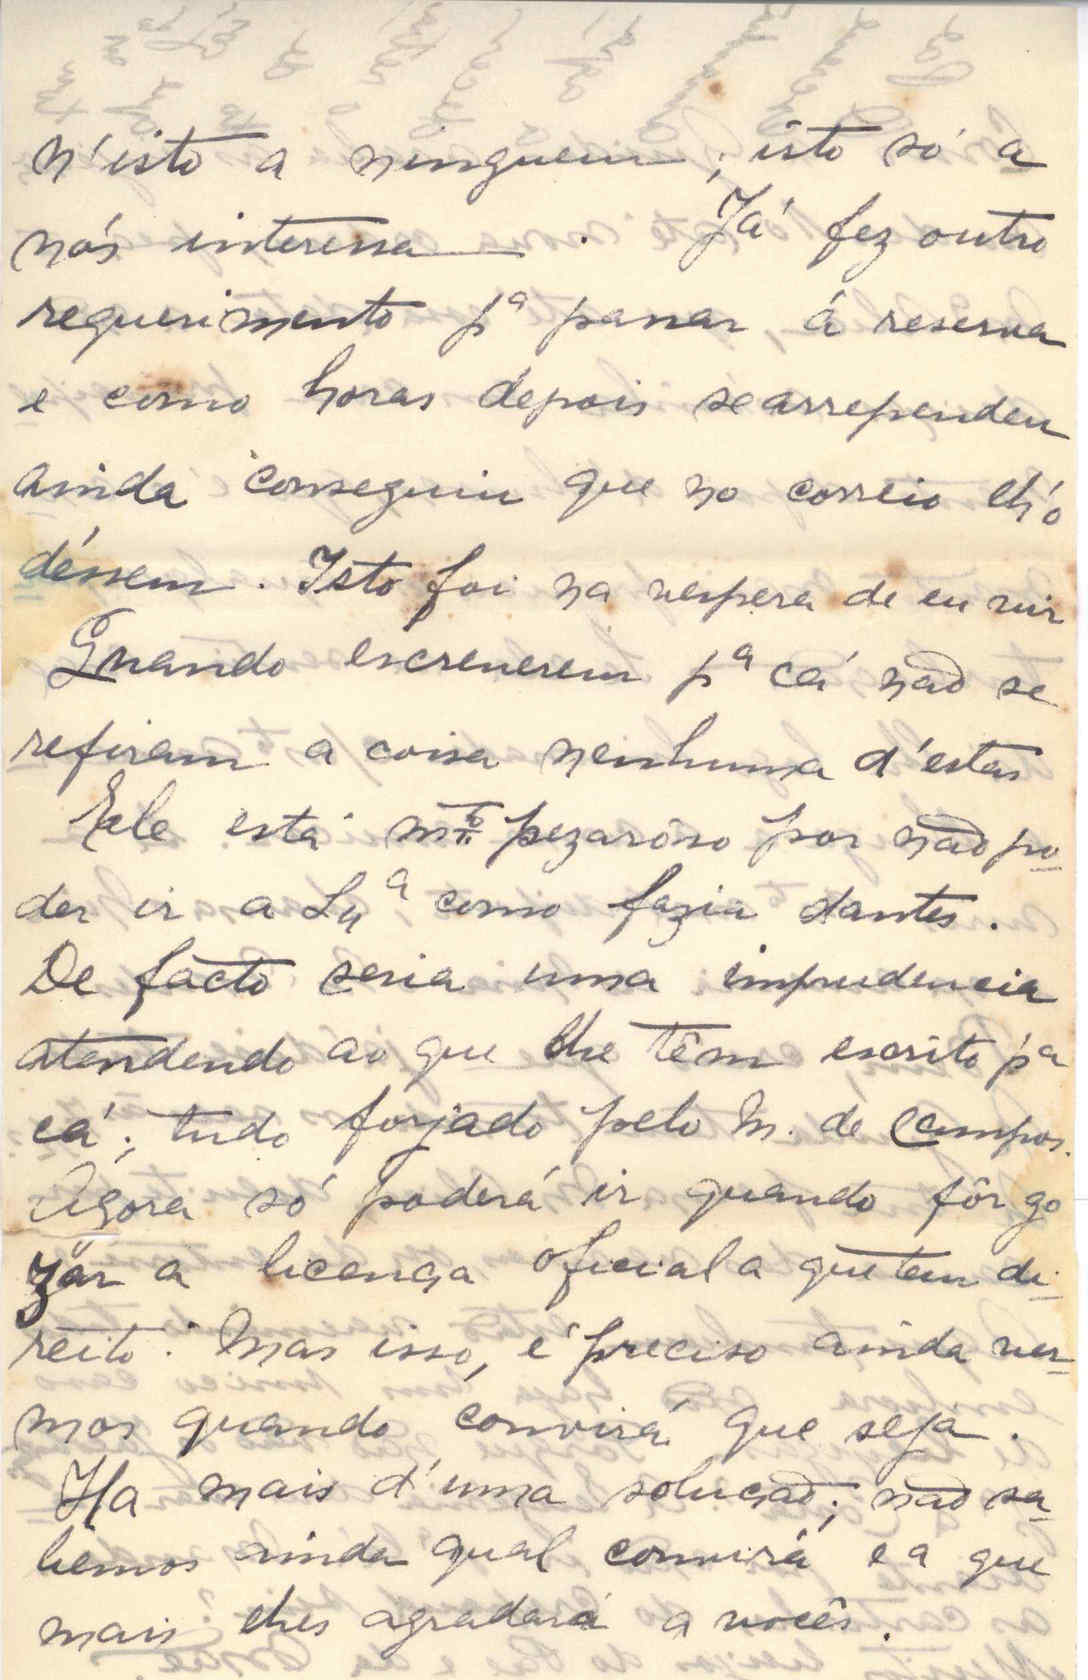 n'isto a ninguem; isto só a
nós interessa. Já fez outro
requerimento pª passar á reserva
e como horas depois se arrependeu
ainda conseguiu que no correio lh'o
déssem. Isto foi na vespera de eu vir
Quando escreverem pª cá não se
refiram a coisa nenhuma d'estas
Ele está mto pezaroso por não po-
der ir a Lxª como fazia dantes.
De facto seria uma imprudencia
atendendo ao que lhe têm escrito pª
cá; tudo forjado pelo M. de Campos.
Agora só poderá ir quando fôr go
zar a licença oficial a que tem di-
reito. Mas isso, é preciso ainda ver-
mos quando convirá que seja.
Ha mais d'uma solução; não sa-
bemos ainda qual convirá e a que
mais lhes agradará a vocês.